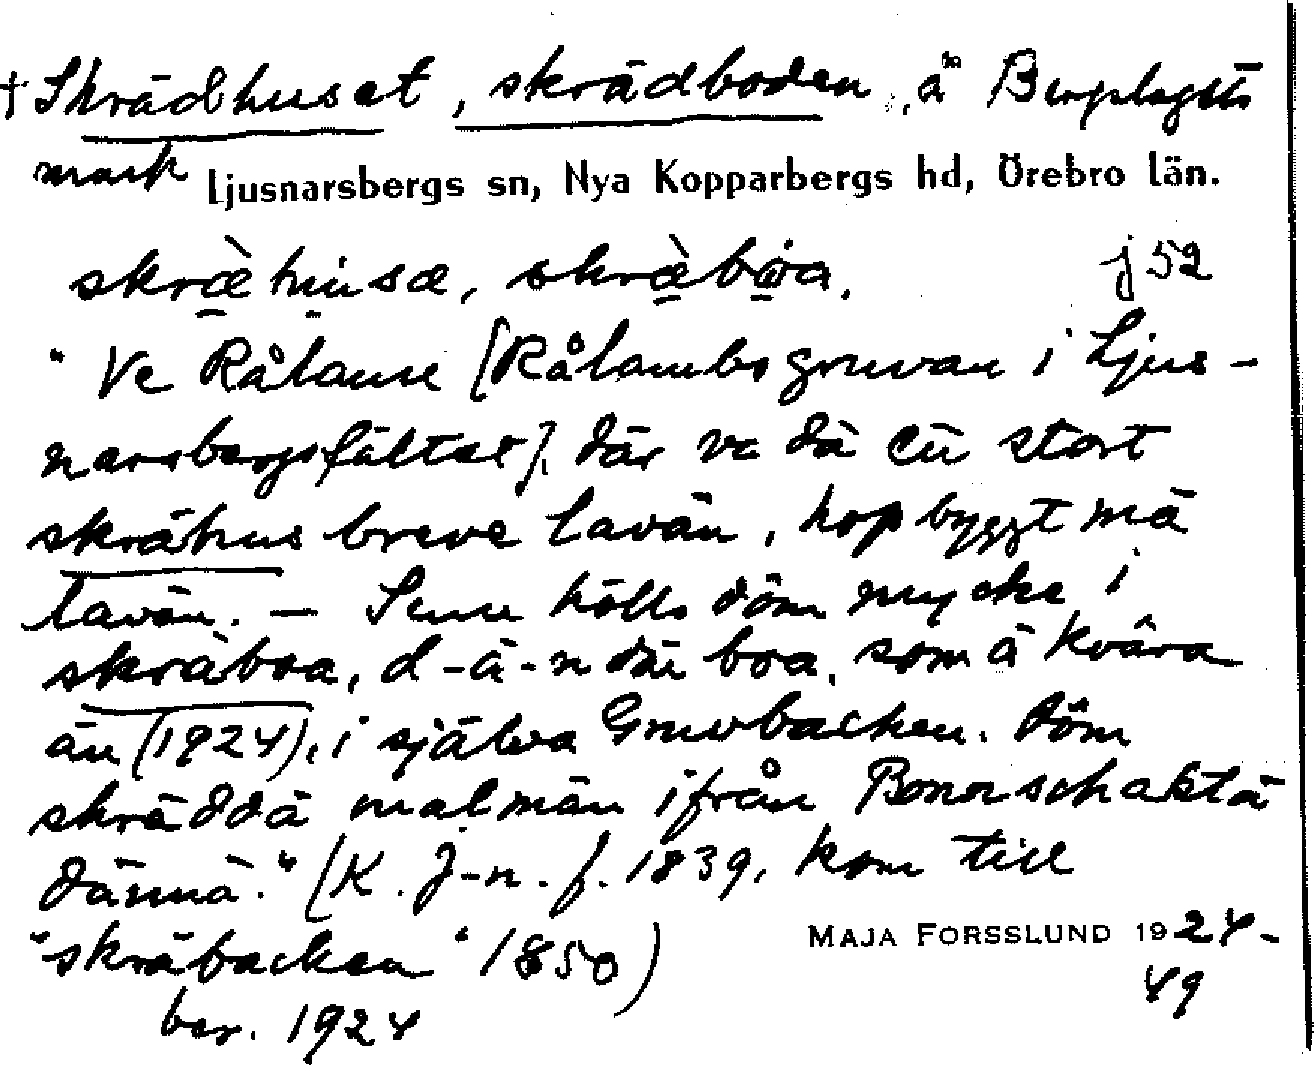 † Skrädhuset, skrädboden, å Bergslagets
mark Ljusnarsbergs sn, Nya Kopparbergs hd, Örebro län.
skræ̀husæ, skræ̀bωa. j 52
"Ve Rålamse [Rålambsgruvan i Ljus-
narsbergsfältet], där va dä ett stort
skrähus breve lavän, hopbyggt mä
lavän. — Senn hölls döm mycke i
skräboa, d-ä-n där boa, som ä kvära
än (1924), i själva Gruvbacken. Döm
skräddä malmän ifrån Bonorschaktä
dännä." (K. J-n. f. 1839, kom till
"skräbacken" 1850)
ber. 1924
MAJA FORSSLUND 1924-
49